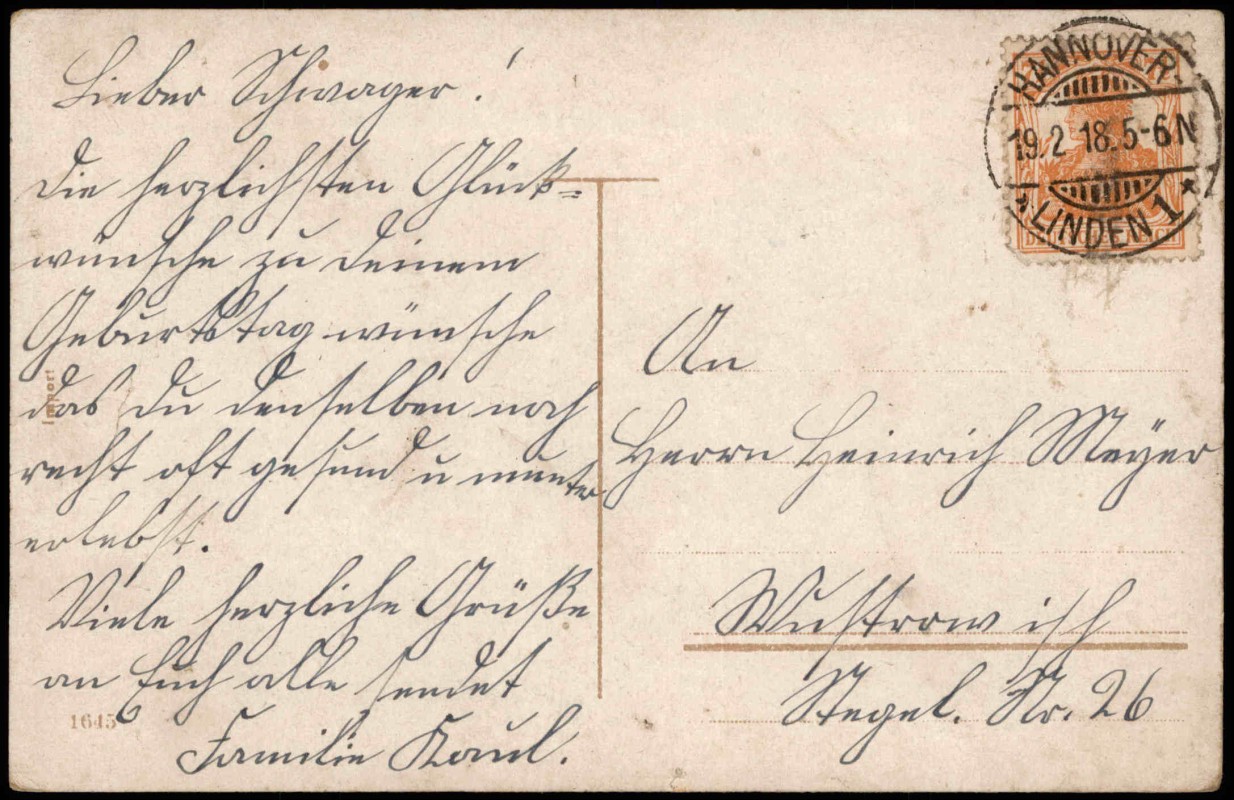 Lieber Schwager!
Die herzlichsten Glück-
wünsche zu Deinem
Geburtstag wünsche
das Du denselben noch
recht oft gesund u munter
erlebst.
Viele herzliche Grüße
an Euch alle sendet
Familie Kaul.
Import
1645
HANNOVER-
19.2 18. 5-6 N
* LINDEN 1 *
An
Herrn Heinrich Meÿer
Wustrow
Nr. 26